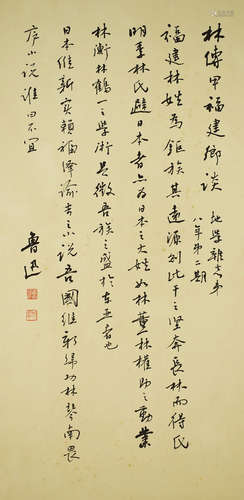 林傳甲福建鄉談
地學雜志第
八年第二期
福建林姓為鉅族其遠源則比干之子堅奔長林而得氏
明季林氏避日本者亦為日本之大姓如林董林權助之勳業
林衡林鶴一之學術足徵吾族之盛於东亚者也
日本維新實賴福澤諭吉之小說吾國維新歸功林琴南畏
序小說誰曰不宜
魯迅